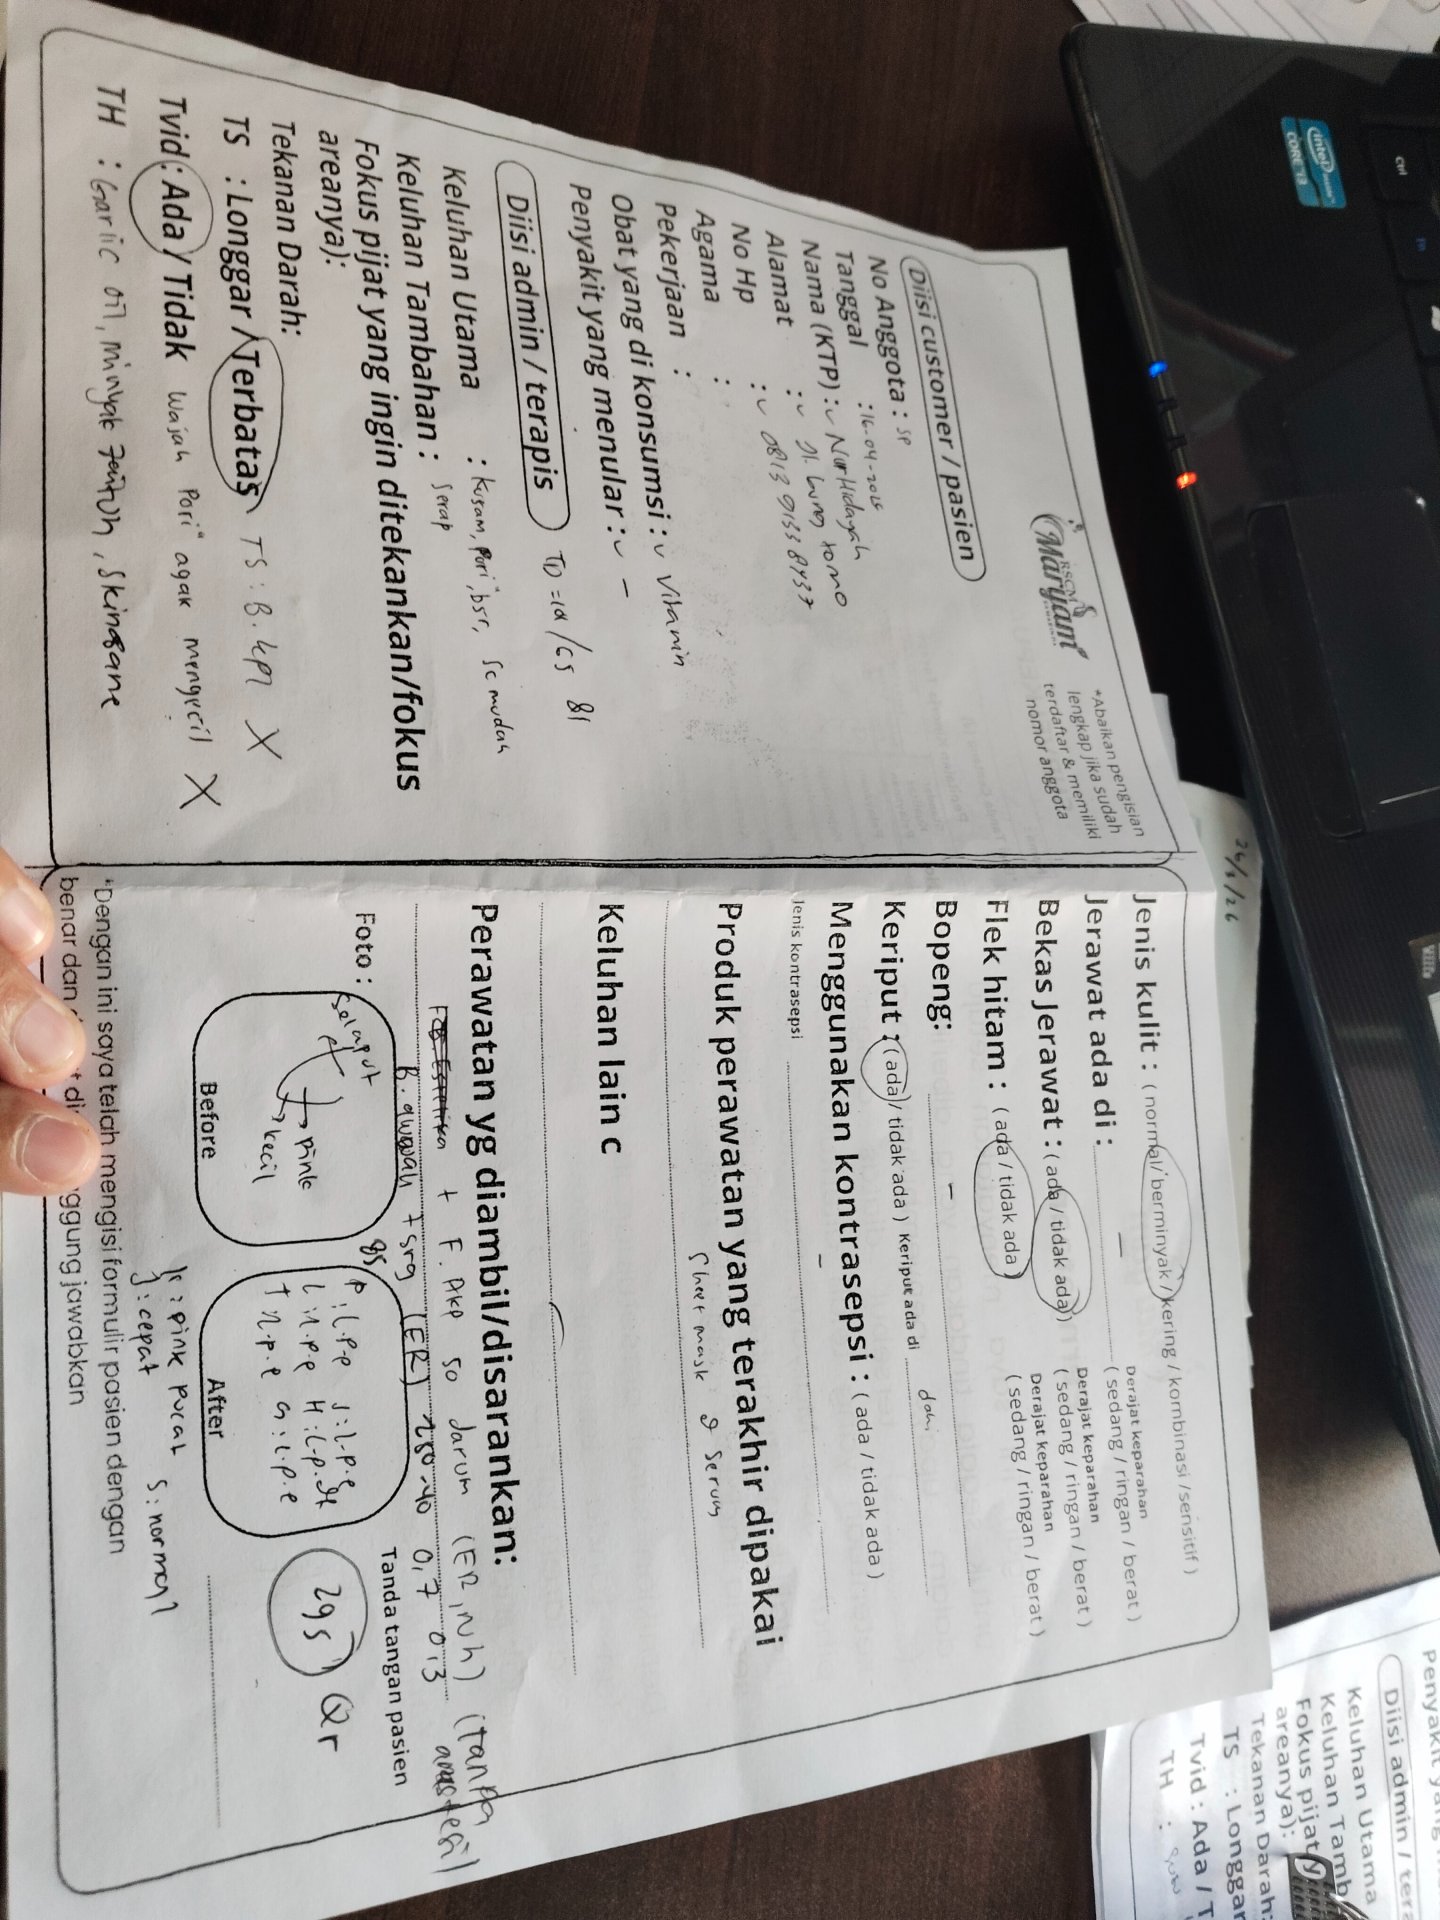 RSCM
Maryam
*Abaikan pengisian
lengkap jika sudah
terdaftar & memiliki
nomor anggota
Diisi customer / pasien
No Anggota : SP
Tanggal :
Nama (KTP) : Nur Hidayah
Alamat : Jl. bung tomo
No Hp : 0813 9133 8437
Agama :
Pekerjaan :
Obat yang di konsumsi : Vitamin
Penyakit yang menular : -
Diisi admin / terapis
81
Keluhan Utama : kusam, pori" bsr, mudah
Keluhan Tambahan : serap
Fokus pijat yang ingin ditekankan/fokus
areanya):
Tekanan Darah:
TS : Longgar / Terbatas TS : B. kpl X
Tvid : Ada / Tidak wajah pori" agak mengecil X
TH : Garlic oil, minyak zaitun, Skinsane
Jenis kulit : ( normal/ berminyak / kering / kombinasi / sensitif )
Jerawat ada di : - Derajat keparahan
( sedang / ringan / berat )
Bekas Jerawat : ( ada / tidak ada ) Derajat keparahan
( sedang / ringan / berat )
Flek hitam : ( ada / tidak ada ) Derajat keparahan
( sedang / ringan / berat )
Bopeng: -
Keriput : ( ada / tidak ada ) Keriput ada di dahi
Menggunakan kontrasepsi : ( ada / tidak ada )
Jenis kontrasepsi -
Produk perawatan yang terakhir dipakai
Sheet mask & Serum
Keluhan lain c
Perawatan yg diambil/disarankan:
+ F. Akp 50 Jarum (ER, Nh) (tanpa
anastesi)
B. awwah + srg (ER) 250.40 0,7 0,3
Foto :
selaput
pink
kecil
Before
85
P : l.p.p J : l.p.e
L : n.p.p
T n.p.e G : l.p.e
After
Tanda tangan pasien
295 Qr
k : pink pucat S : normal
J : cepat
*Dengan ini saya telah mengisi formulir pasien dengan
benar dan ggung jawabkan
intel
CORE i3
Ctrl
Fn
VIITa
26/1/26
Penyakit
Diisi admin / tera
Keluhan Utama
Keluhan Tamb
Fokus pijat y
areanya):
Tekanan Darah:
TS : Longgar
Tvid : Ada / T
TH :